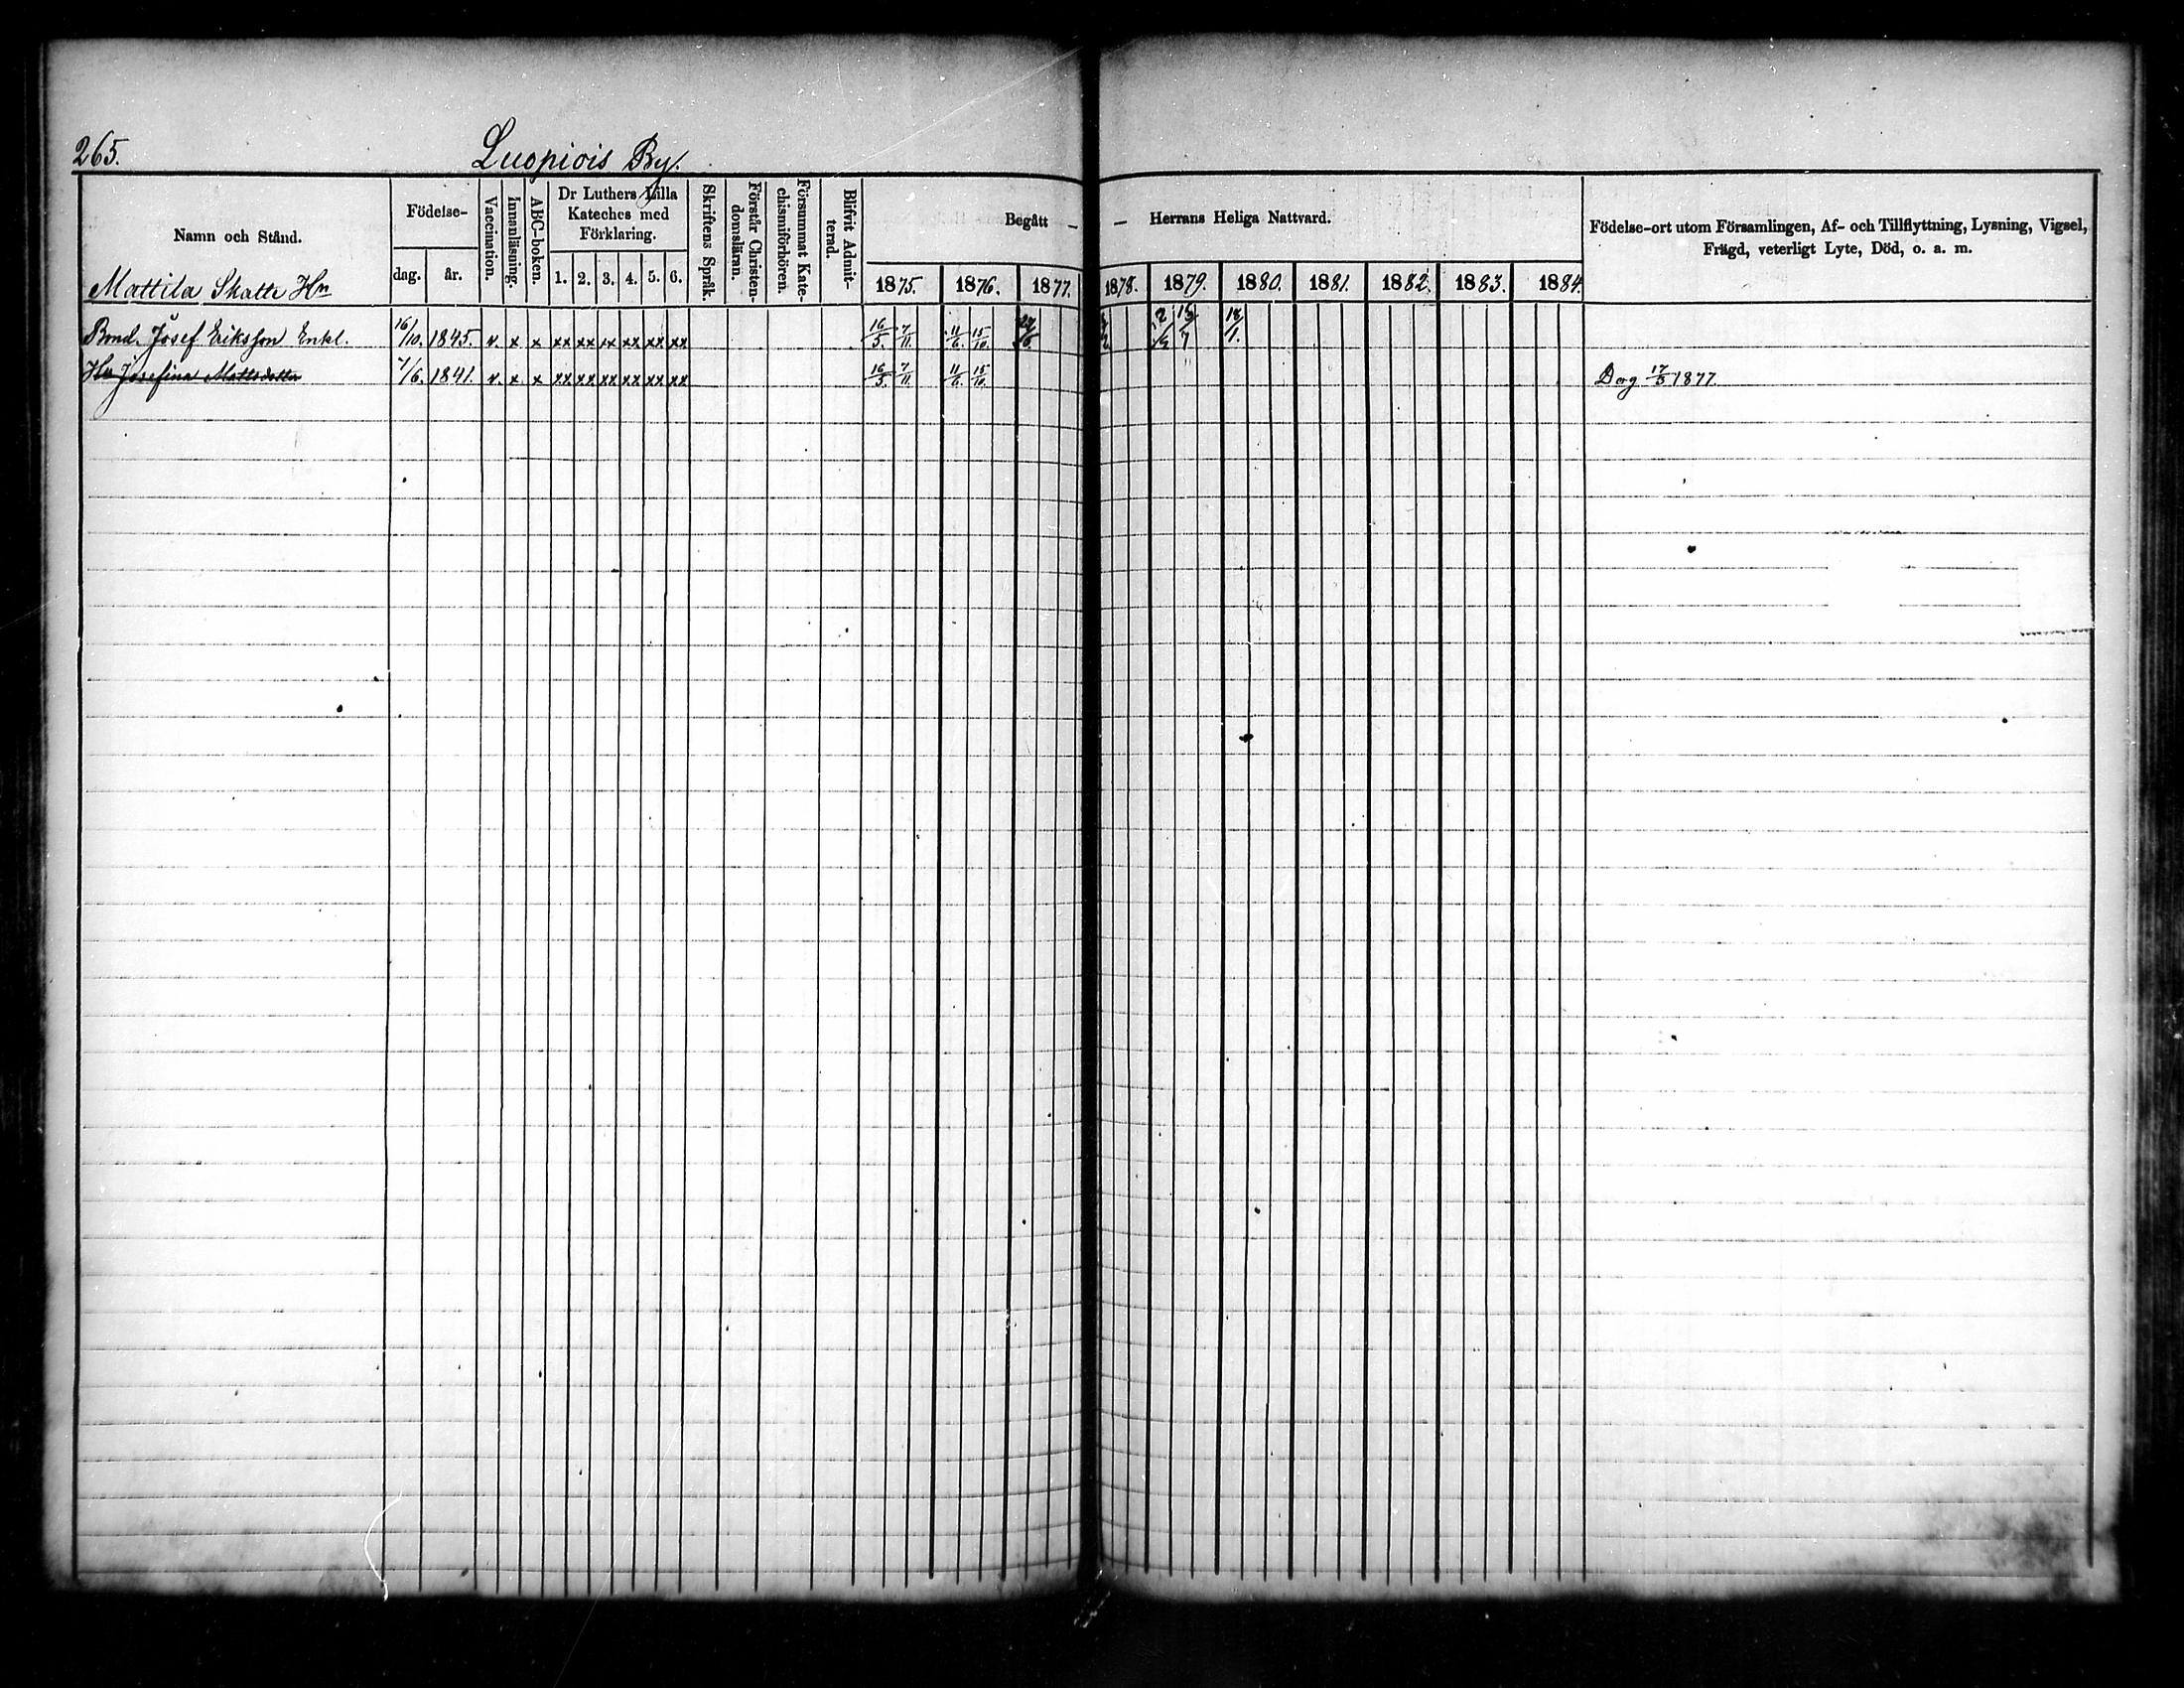 265.
Luopiois By.
Namn och Stånd.
Mattila Skatte Hn
Födelse-
dag. år.
Vaccination.
Innanläsning.
ABC-boken.
Dr Luthers Lilla
Kateches med
Förklaring.
1. 2. 3. 4. 5. 6.
Skriftens Språk.
Förstår Christen-
domsläran.
Försummat Kate-
chismiförhören.
Blifvit Admit-
terad.
Begått — — Herrans Heliga Nattvard.
1875. 1876. 1877. 1878. 1879. 1880. 1881. 1882. 1883. 1884.
Födelse-ort utom Församlingen, Af- och Tillflyttning, Lysning, Vigsel,
Frägd, veterligt Lyte, Död, o. a. m.
Bond. Josef Eriksson Enkl. 16/10. 1845. v. x x xx xx xx xx xx xx 16/5. 7/11. 11/6. 15/10. 18/1.
Hu Josefina Mattsdotter 7/6. 1841. v. x x xx xx xx xx xx xx 16/5. 7/11. 11/6. 15/10. Dog 17/5 1877.